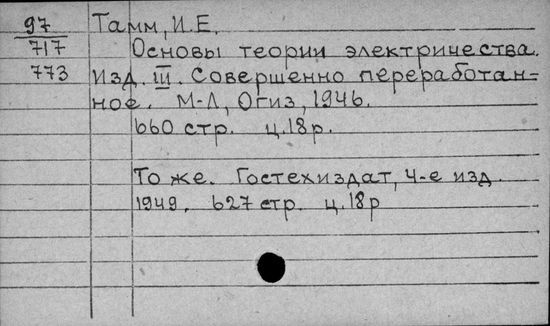 97 Тамм, И.Е.
717 Основы теории электричества.
773 Изд. III. Совершенно переработан=
ное. М-Л, Огиз, 1946.
660 стр. ц. 18 р.
То же. Гостехиздат, 4-е изд.
1949. 627 стр. ц. 18 р